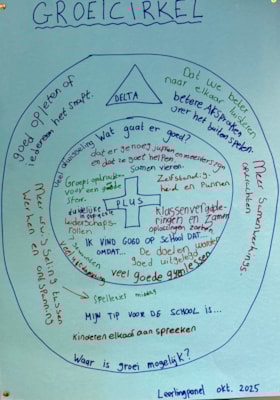 GROEICIRKEL
goed opletten of
iedereen het snapt.
Dat we beter
naar elkaar luisteren
betere AFspraken
over het buiten spelen.
Meer Samenwerkings.
opdrachten
Meer wisseling tussen
werken en ontspanning
DELTA
Wat gaat er goed?
dat er genoeg juffen en meesters zijn
en dat ze goed helpen
Samen vieren.
Groeps opdrachten
voor een goede
sfeer.
Zelfstandig-
heid en Plannen
duidelijke
leiderschaps-
rollen
PLUS
Klassenvergader-
ringen en Zamen
oplossingen zoeken
IK VIND GOED OP SCHOOL DAT...
OMDAT...
De doelen worden
goed uitgelegd
veel goede gymlessen
Spelletjes middag
MIJN TIP VOOR DE SCHOOL IS...
Kinderen elkaar aan spreeken
Waar is groei mogelijk?
Leerlingpanel okt. 2025